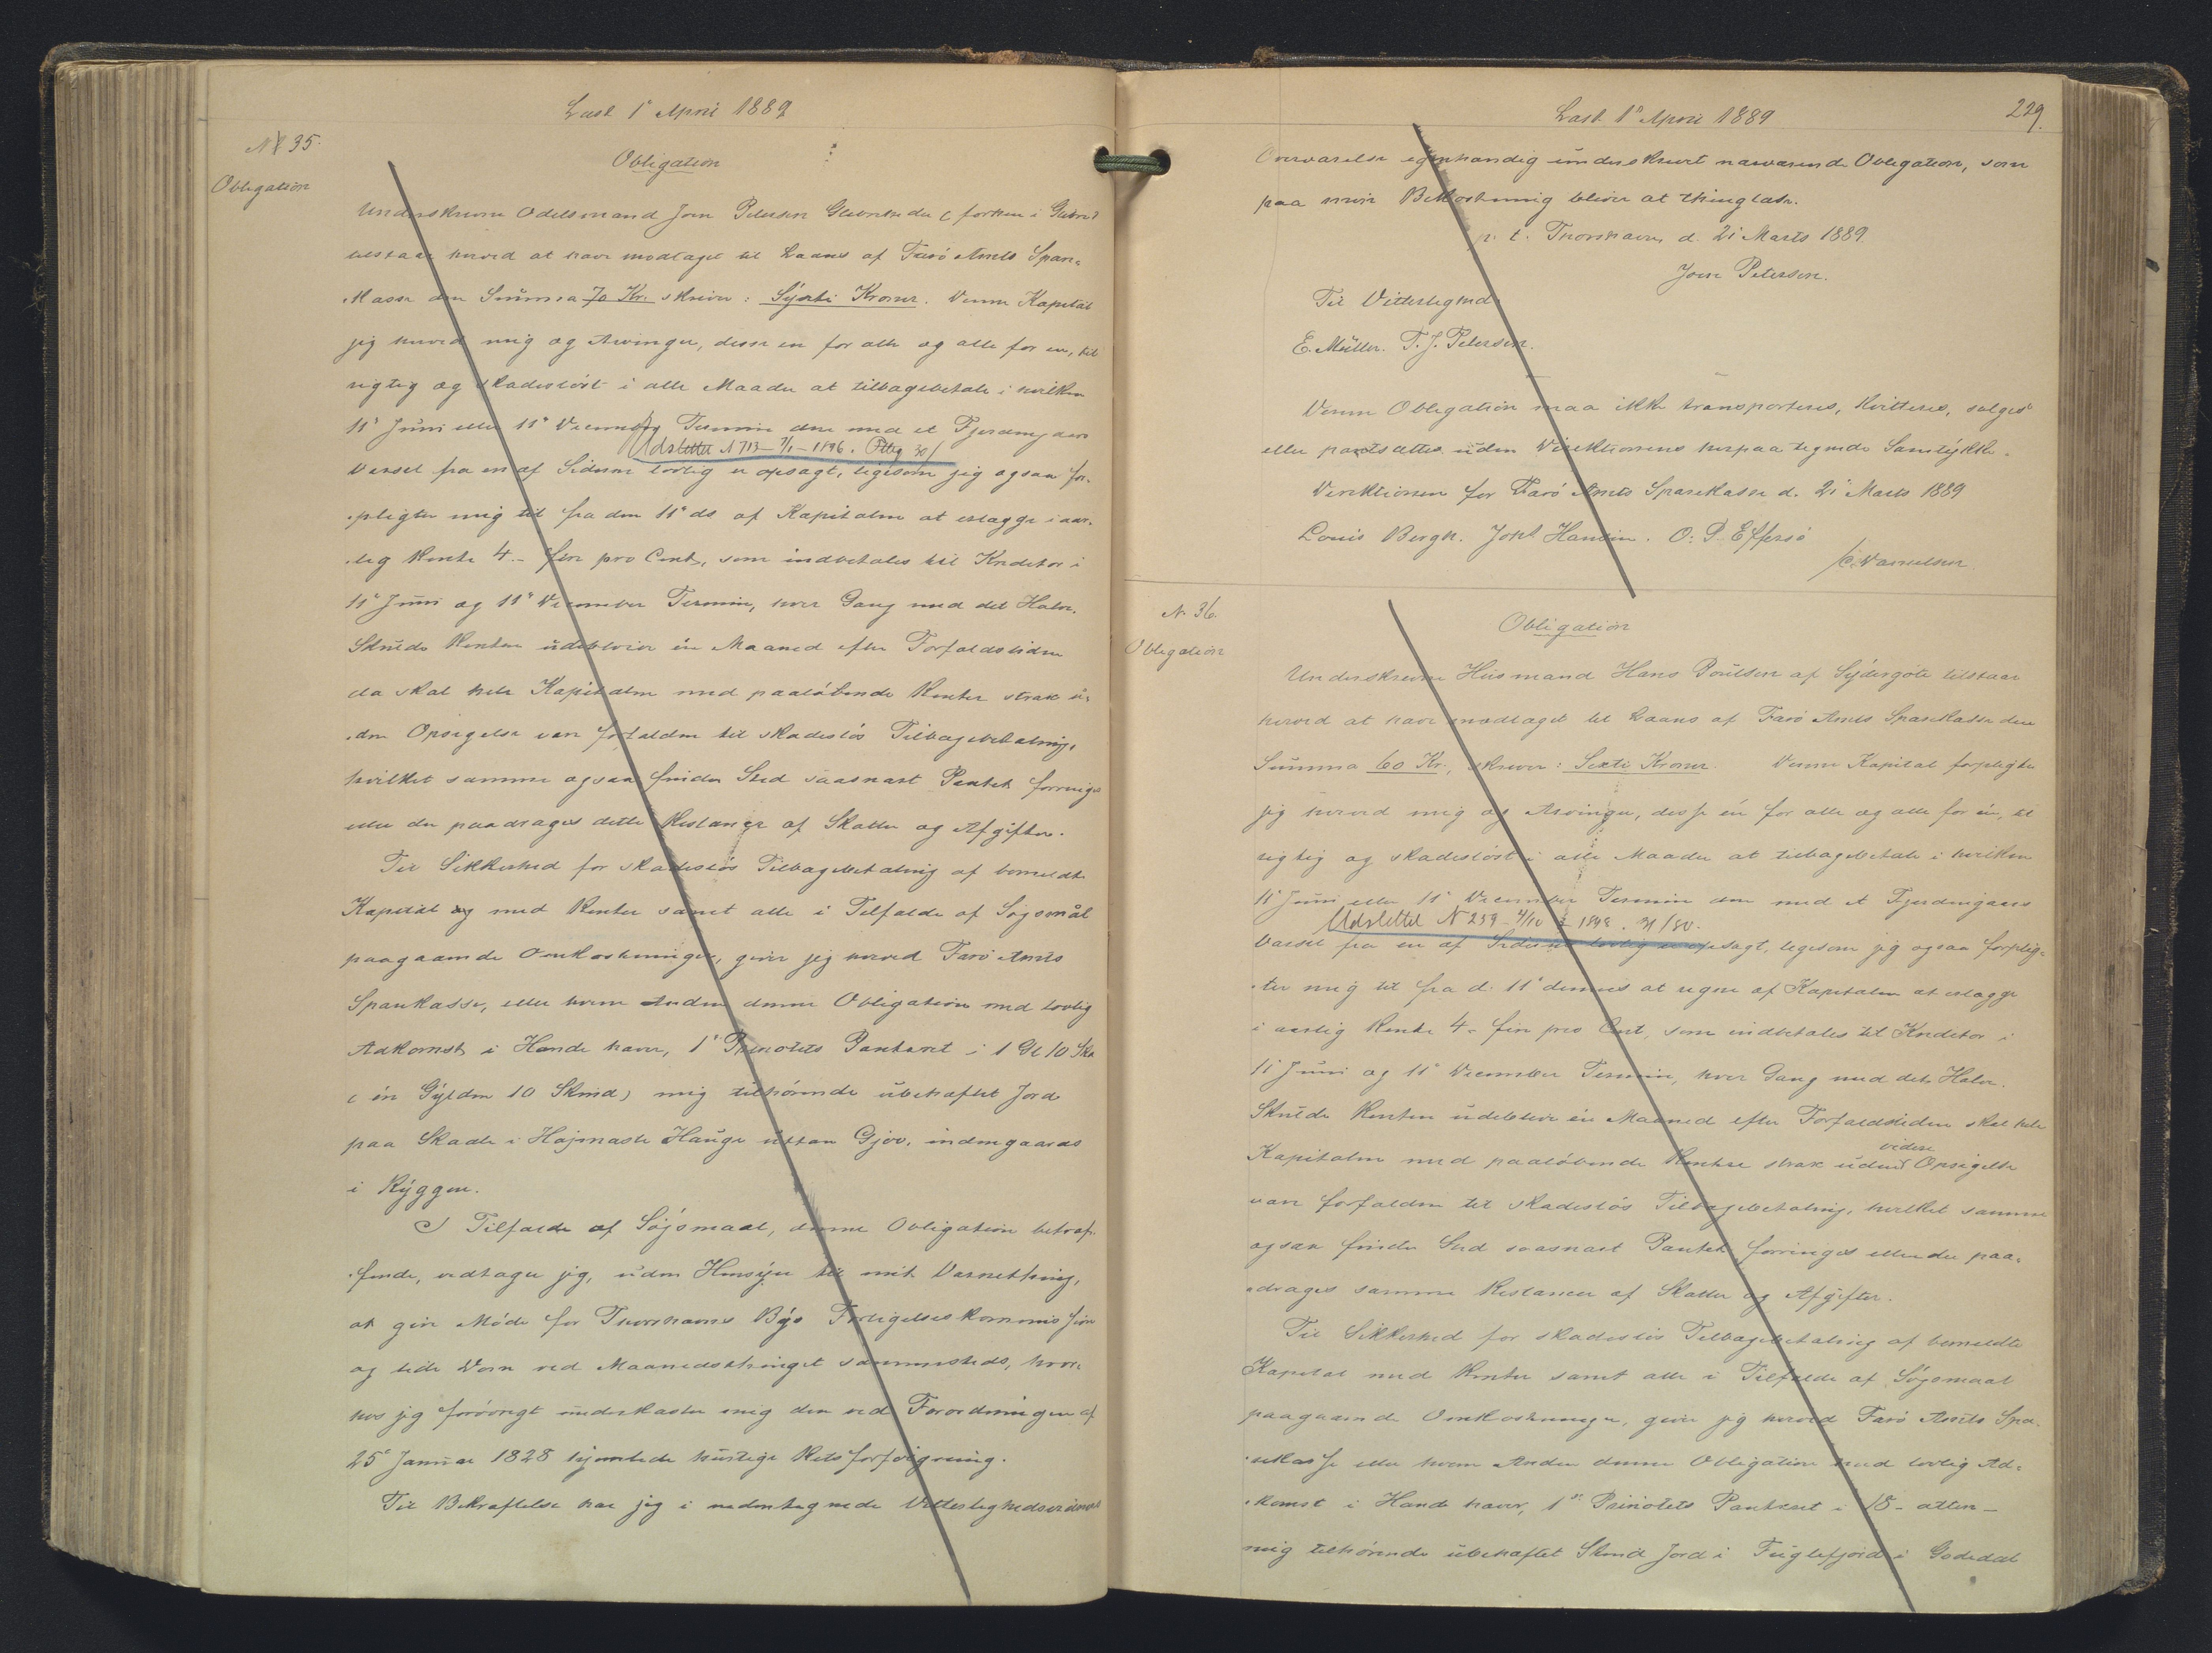 Læst 1ᵉ April 1889
N 35.
Obligation
Obligation
Underskrevne Odelsmand Joen Petersen
tilstaar herved at have modtaget til Laans af Færø Amts Spare-
kasse den Summa 70 Kr. skriver: Sýtti Kroner. Denne Kapital
jeg herved mig og Arvinger, disse en for alle og alle for en, til
rigtig og skadesløst i alle Maader at tilbagebetale i hvilken
11ᵉ Juni eller 11ᵉ December Termin den med et Fjerdingaars
Udslettet N 713 - 7/1 - 1896.
Varsel fra en af Siderne lovlig er opsagt, ligesom jeg ogsaa for-
pligter mig til fra den 11ᵉ ds af Kapitalen at erlægge i aar-
lig Rente 4 - fire pro Cent, som indbetales til Kreditor i
11ᵉ Juni og 11ᵉ December Termin, hver Gang med det Halve.
Skulde Renten udebliver én Maaned efter Forfaldstiden
da skal hele Kapitalen med paaløbende Renter strax u-
den Opsigelse være forfalden til skadesløs Tilbagebetaling,
hvilket samme ogsaa finder Sted saasnart Pantet forringes
eller der paadrages dette Restancer af Skatter og Afgifter.
Til Sikkerhed for skadesløs Tilbagebetaling af bemeldte
Kapital og med Renter samt alle i Tilfælde af Søgsmål
paagaaende Omkostninger, giver jeg herved Færø Amts
Sparekasse, eller hvem Anden denne Obligation med lovlig
Adkomst i Hænde haver, 1ˢ Prioritets Panteret i 1 Gl 10 Sk
( én Gylden 10 Skind) mig tilhørende ubehæftet Jord
paa Skaale i Højmaste Hauge uttan Gjov, indengaards
i Ryggen.
I Tilfælde af Søgsmaal, denne Obligation betræf-
fende, vedtager jeg, uden Hensyn til mit Værnething,
at give Møde for Thorshavns Bys Forligelseskommission
og lide Dom ved Maanedsthinget sammesteds, hvor-
hos jeg forøvrigt underkaster mig den ved Forordningen af
25ᵉ Januar 1828 hjemlede hurtige Retsforfølgning.
Til Bekræftelse har jeg i nedentegnede Vitterlighedsvidners
Læst 1ᵉ April 1889
229.
Overværelse egenhændig underskrevet nærværende Obligation, som
paa min Bekostning bliver at thinglæse.
p. t. Thorshavn d. 21 Marts 1889.
Joen Petersen.
Til Vitterlighed
E. Müller. T. J. Petersen.
Denne Obligation maa ikke transporteres, kvitteres, sælges
eller pantsættes uden Direktionens herpaa tegnede Samtykke.
Direktionen for Færø Amts Sparekasse d. 21 Marts 1889
Louis Bergh. Joh. Hansen. O. P. Effersø
/C. Danielsen
N. 36.
Obligation
Obligation
Underskrevne Husmand Hans Poulsen af Sydergøte tilstaar
herved at have modtaget til Laans af Færø Amts Sparekasse den
Summa 60 Kr., skriver: Sexti Kroner. Denne Kapital forpligter
jeg herved mig og Arvinger, disse én for alle og alle for én, til
rigtig og skadesløst i alle Maader at tilbagebetale i hvilken
11ᵉ Juni eller 11ᵉ December Termin den med et Fjerdingaars
Udslettet N 259 - 4/10 1898. 31/80.
Varsel fra en af Siderne lovlig er opsagt, ligesom jeg ogsaa forplig-
ter mig til fra d. 11ᵉ dennes at regne af Kapitalen at erlægge
i aarlig Rente 4 - fire pro Cent, som indbetales til Kreditor i
11 Juni og 11ᵉ December Termin, hver Gang med det Halve.
Skulde Renten udeblive én Maaned efter Forfaldstiden skal hele
Kapitalen med paaløbende Renter strax uden videre Opsigelse
være forfalden til skadesløs Tilbagebetaling, hvilket samme
ogsaa finder Sted saasnart Pantet forringes eller der paa-
drages samme Restancer af Skatter og Afgifter.
Til Sikkerhed for skadesløs Tilbagebetaling af bemeldte
Kapital med Renter samt alle i Tilfælde af Søgsmaal
paagaaende Omkostninger, giver jeg herved Færø Amts Spa-
rekasse eller hvem Anden denne Obligation med lovlig Ad-
komst i Hænde haver, 1ˢᵗ Prioritets Panteret i 18 - atten -
mig tilhørende ubehæftet Skind Jord i Fuglefjord i Godedal